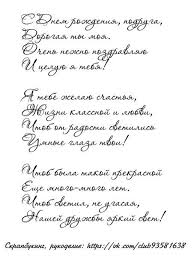 С Днем рождения, подруга,
Дорогая ты моя.
Очень нежно поздравляю
И целую я тебя!
Я тебе желаю счастья,
Жизни классной и любви,
Чтоб от радости светились
Умные глаза твои!
Чтоб была такой прекрасной
Еще много-много лет.
Чтоб светил, не угасая,
Нашей дружбы яркий свет!
Скрапбукинг, рукоделие: https://ok.com/club93581638